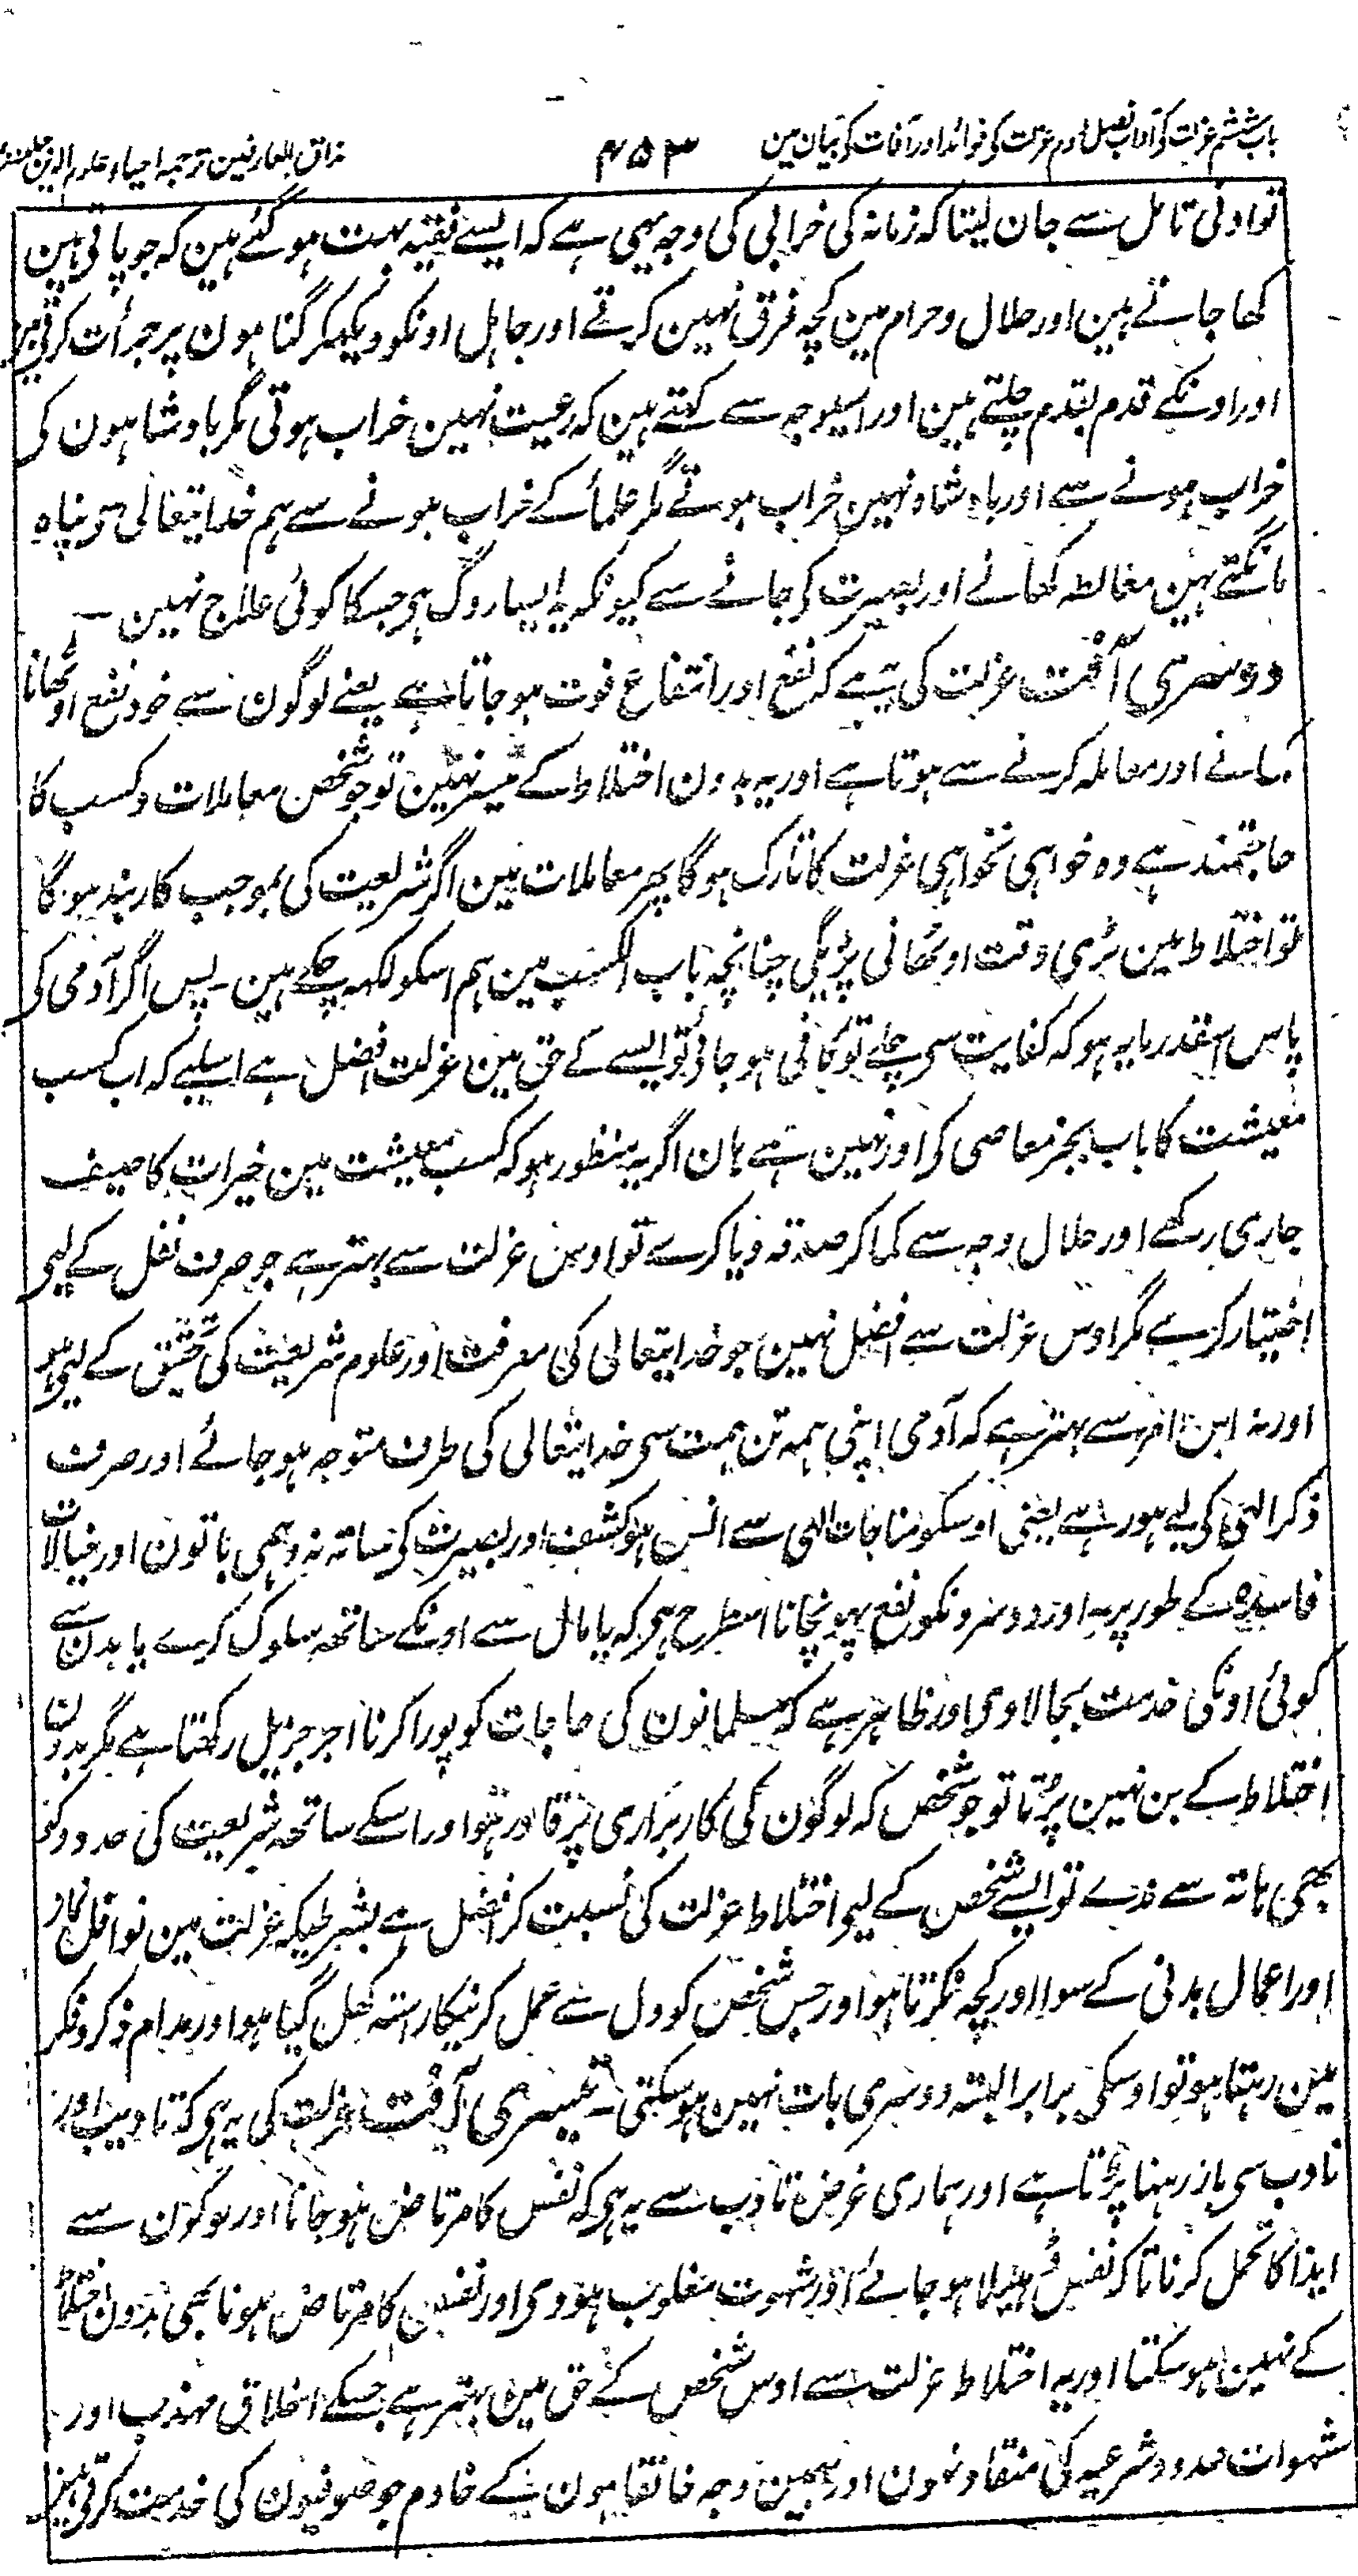 باب ششم عزلت کی آداب فصل دوم عزلت کی فوائد اور آفات کی بیان مین
۴۵۳
مذاق العارفین ترجمہ احیاء علوم الدین جلد
تو ادنی تامل سے جان لیتا کہ زمانہ کی خرابی کی وجہ یہی ہے کہ ایسے فقیہ بہت ہو گئے ہین کہ جو پاتی ہین
کھا جاتے ہین اور حلال و حرام مین کچہ فرق نہین کرتے اور جاہل اونکو دیکھکر گناہون پر جرأت کرتی ہین
اور اونکے قدم بقدم چلتے ہین اور اسیوجہ سے کہتے ہین کہ رعیت نہین خراب ہوتی مگر بادشاہون کی
خراب ہونے سے اور بادشاہ نہین خراب ہوتے مگر علما کے خراب ہونے سے ہم خدایتعالی سے پناہ
مانگتے ہین مغالطہ کھانے اور بصیرت کی جانے سے کیونکہ یہ ایسا روگ ہی جسکا کوئی علاج نہین ۔
دوسری آفت عزلت کی یہ ہے کہ نفع اور انتفاع فوت ہو جاتا ہے یعنے لوگون سے خود نفع اوٹھانا
کمانے اور معاملہ کرنے سے ہوتا ہے اور یہ بدون اختلاط کے میسر نہین تو جو شخص معاملات و کسب کا
حاجتمند ہے وہ خواہی نخواہی عزلت کا تارک ہوگا پھر معاملات مین اگر شریعت کی بموجب کاربند ہوگا
تو اختلاط مین بڑی دقت اوٹھانی پڑیگی چنانچہ باب الکسب مین ہم اسکو لکہہ چکے ہین ۔ پس اگر آدمی کی
پاس اسقدر مایہ ہو کہ کفایت سی چلے تو کافی ہو جاوی تو ایسے کے حق مین عزلت افضل ہے اسلیے کہ اب کسب
معیشت کا باب بجز معاصی کی اور نہین ہے ہان اگر یہ منظور ہو کہ کسب معیشت مین خیرات کا صیغہ
جاری رکھے اور حلال وجہ سے کما کر صدقہ دیا کرے تو اوس عزلت سے بہتر ہے جو صرف نفل کے لیی
اختیار کرے مگر اوس عزلت سے افضل نہین جو خدایتعالی کی معرفت اور علوم شریعت کی تحقیق کے لیی ہو
اور نہ اس امر سے بہتر ہے کہ آدمی اپنی ہمہ تن ہمت سی خدایتعالی کی طرف متوجہ ہو جائے اور صرف
ذکر الہی کی لیے ہو رہے یعنی اوسکو مناجات الہی سے انس ہو کشف اور بصیرت کی ساتہ نہ وہمی باتون اور خیالات
فاسدہ کے طور پر ۔ اور دوسرونکو نفع پہونچانا اسطرح ہی کہ یا مال سے اونکے ساتھہ سلوک کرے یا بدن سے
کوئی اونکی خدمت بجا لاوی اور ظاہر ہے کہ مسلمانون کی حاجات کو پورا کرنا اجر جزیل رکھتا ہے مگر بدون
اختلاط کے بن نہین پڑتا تو جو شخص کہ لوگون کی کاربراری پر قادر ہو اور اسکے ساتھہ شریعت کی حدود کو
بھی ہاتہ سے ندے تو ایسے شخص کے لیی اختلاط عزلت کی نسبت کر افضل ہے بشرطیکہ عزلت مین نوافل نماز
اور اعمال بدنی کے سوا اور کچہ نکرتا ہو اور جس شخص کو دل سے عمل کرنیکا رستہ کھل گیا ہو اور مدام ذکر و فکر
مین رہتا ہو تو اوسکی برابر البتہ دوسری بات نہین ہو سکتی ۔ تیسری آفت عزلت کی یہ ہی کہ تادیب اور
تادب سی باز رہنا پڑتا ہے اور ہماری غرض تادب سے یہ ہی کہ نفس کا مرتاض ہو جانا اور لوگون سے
ایذا کا تحمل کرنا تاکہ نفس ڈھیلا ہو جائے اور شہوت مغلوب ہووی اور نفس کا مرتاض ہونا بھی بدون اختلاط
کے نہین ہو سکتا اور یہ اختلاط عزلت سے اوس شخص کے حق مین بہتر ہے جسکے اخلاق مہذب اور
شہوات حدود شرعیہ کی منقاد نہون اور بہمین وجہ خانقاہون کے خادم جو صوفیون کی خدمت کرتی ہین